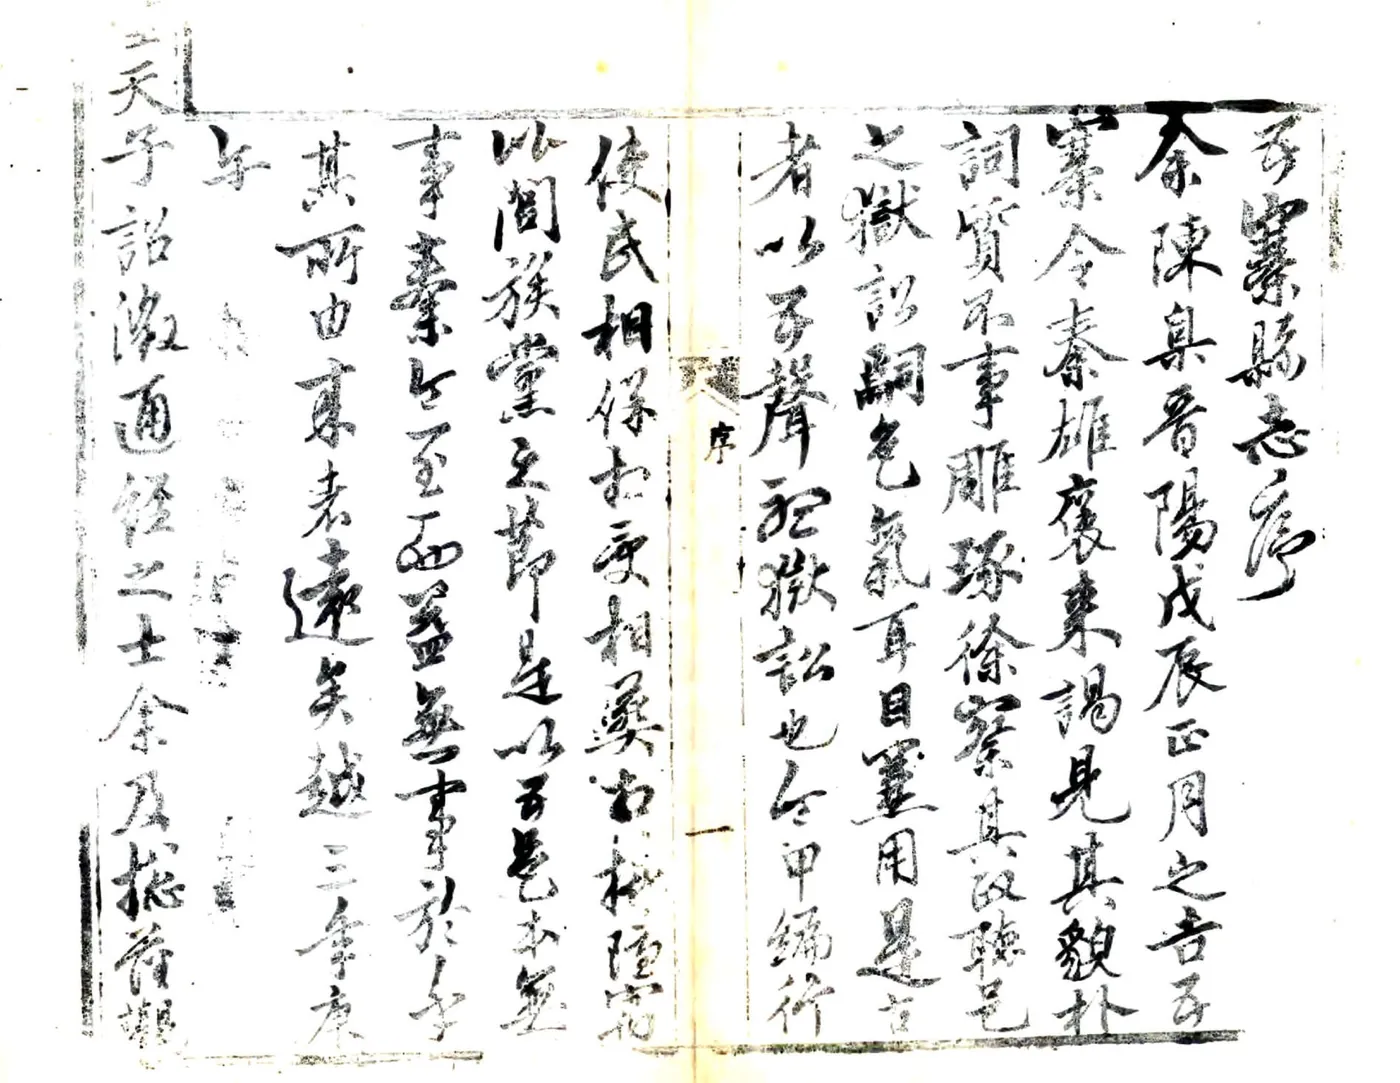 五寨縣志序
余陳臬晉陽戊辰正月之吉五
寨令秦雄褒來謁見其貌朴
詞質不事雕琢徐察其政聽邑
之獄訟嗣色氣耳目並用是古
者以五聲聽獄訟也令甲編行
使民相保相受相葬相救隱寓
比閭族黨之節是以五邑本無
事秦令至而益無事於今
其所由來者遠矣越三年庚
午
天子詔徵通經之士余及摠藩觀
序
一